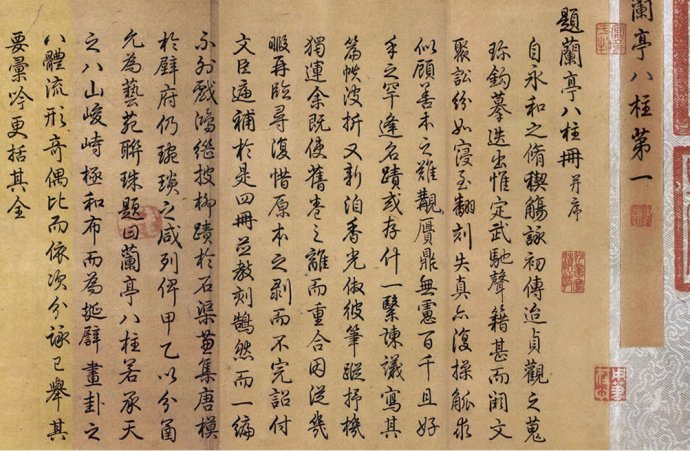 蘭亭八柱第一
題蘭亭八柱冊并序
自永和之脩稧觴詠初傳迨貞觀之蒐
珎鈎摹迭出惟定武馳聲籍甚而闕文
聚訟紛如寖至翻刻失真亦復操觚求
似顧善本之難覯贋鼎無慮百千且好
手之罕逢名蹟或存什一繄諫議寫其
篇帙波折又新洎香光倣彼筆蹤抒機
獨運余既使舊卷之離而重合因從幾
暇再臨尋復惜原本之剥而不完詔付
文臣遍補於是四冊並教刻鵠然而一編
不外戲鴻繼披柳蹟於石渠薈集唐模
於壁府仍琬琰之咸列俾甲乙以分函
允為藝苑聯珠題曰蘭亭八柱若承天
之八山峻峙極和布而為埏壁畫卦之
八體流形奇偶比而依次分詠已舉其
要彙吟更括其全